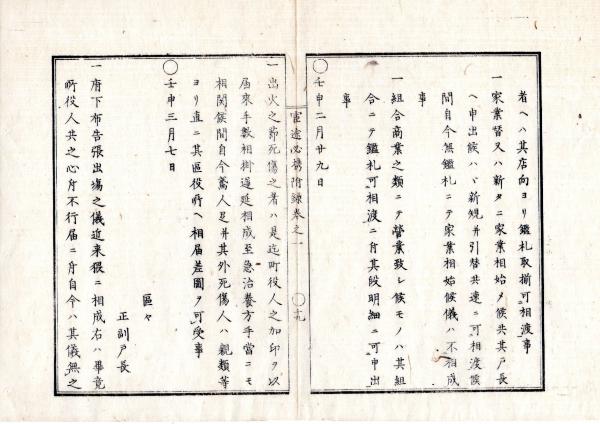 者ヘハ其店向ヨリ鑑札取揃可相渡事
一家業替又ハ新タニ家業相始メ候共其戸長
ヘ申出候ハヾ新規并引替共速ニ可相渡候
間自今無鑑札ニテ家業相始候儀ハ不相成
事
一組合商業之類ニテ營業致シ候モノハ其組
合ニテ鑑札可相渡ニ付其段明細ニ可申出
事
〇壬申二月廿九日
必携附録巻之一
〇十九
一出火之節死傷之者ハ是迄町役人之加印ヲ以
届來手數相掛遅延相成至急治養方手當ニモ
相関候間自今鳶人足并其外死傷人ハ親類等
ヨリ直ニ其區役所ヘ相届差圖ヲ可受事
〇壬申三月七日
區々
正副戸長
一府下布告張出場之儀近来猥ニ相成右ハ畢竟
所役人共之心付不行届ニ付自今ハ其儀無之